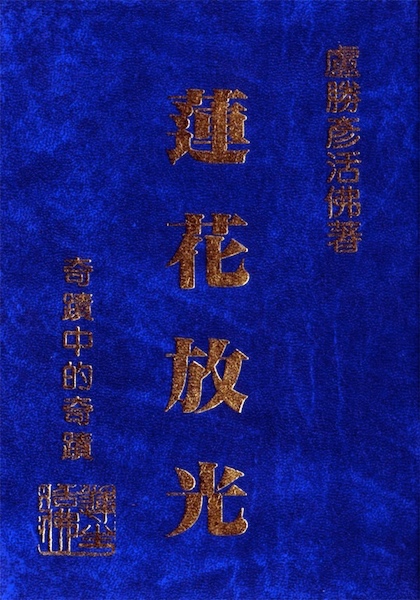 盧勝彥活佛著
蓮花放光
奇蹟中的奇蹟
蓮生
活佛